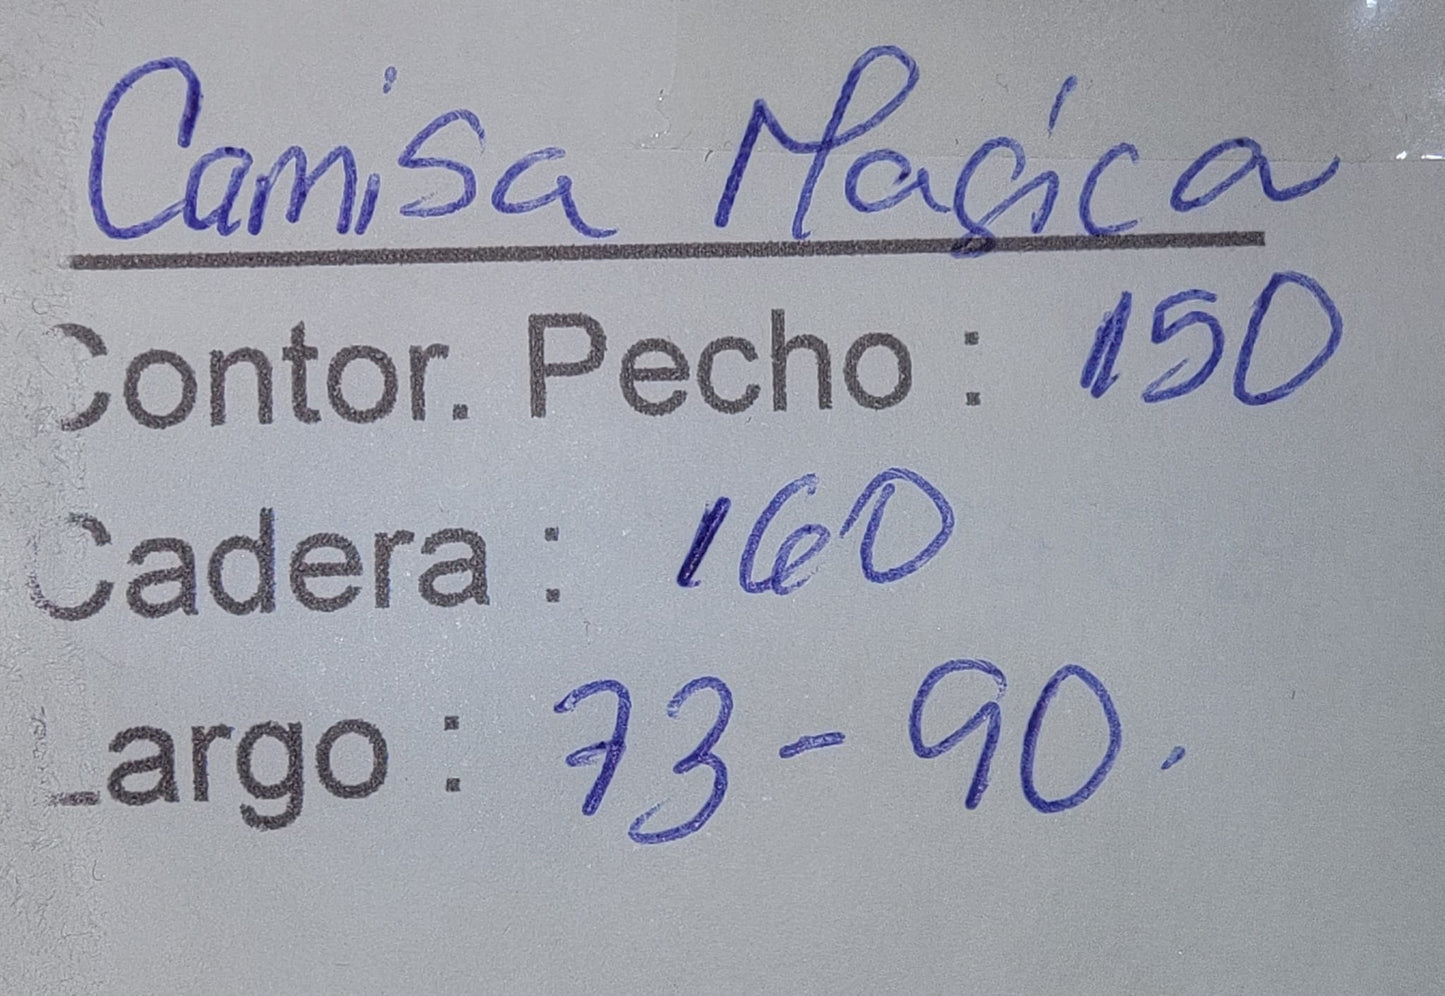 Camisa Magica
Contor. Pecho : 150
Cadera : 160
Largo : 73-90.